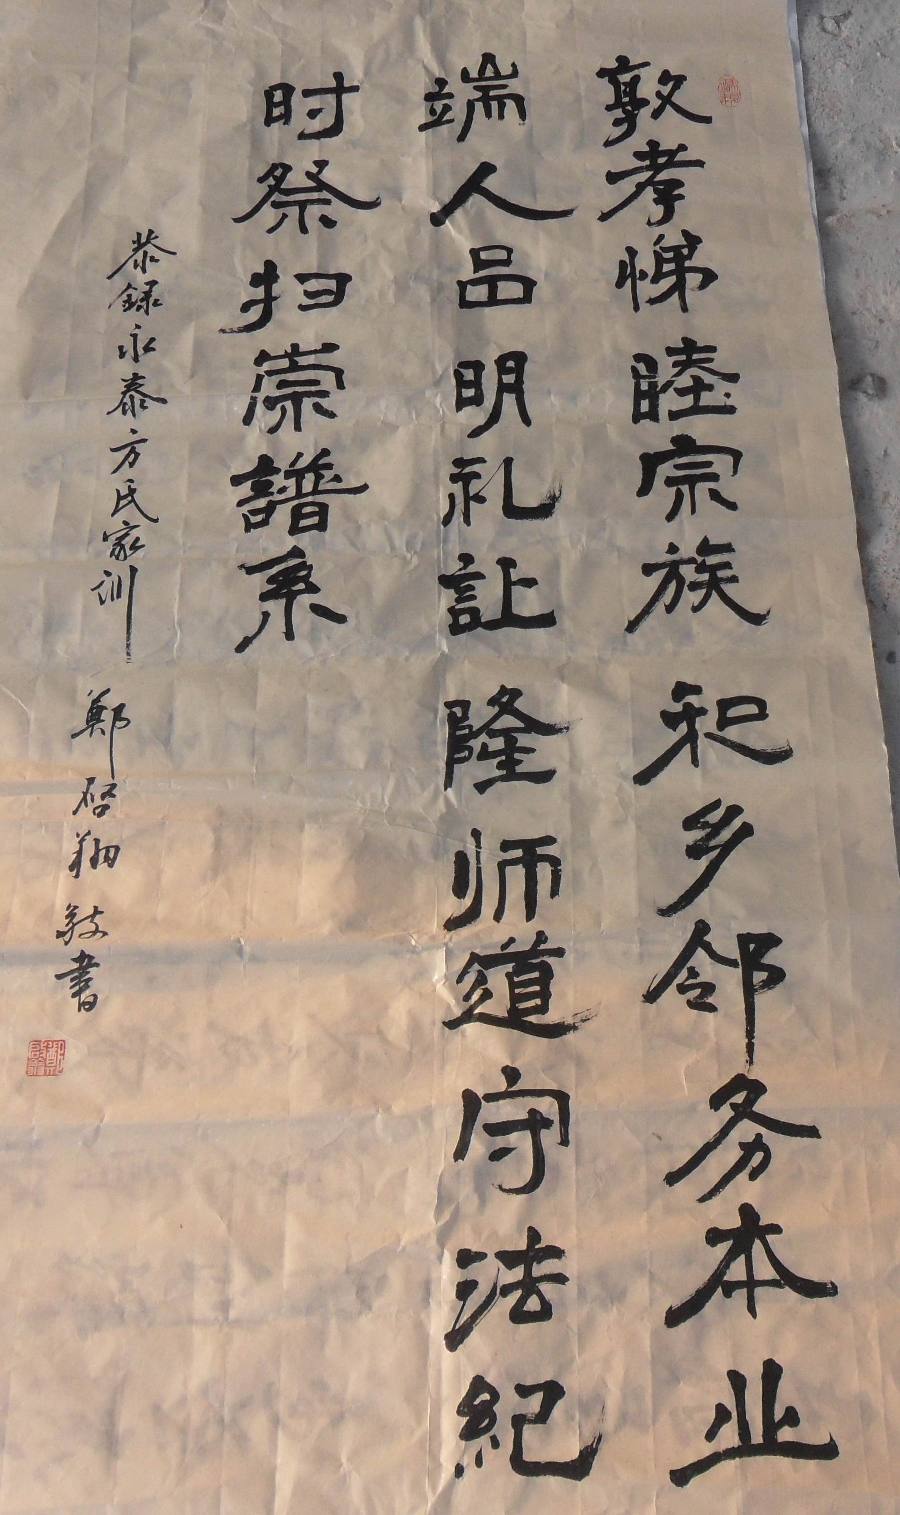 敦孝悌睦宗族和乡邻务本业
端人品明礼让隆师道守法纪
时祭扫崇谱系
恭録永泰方氏家训
鄭啓翔敬書